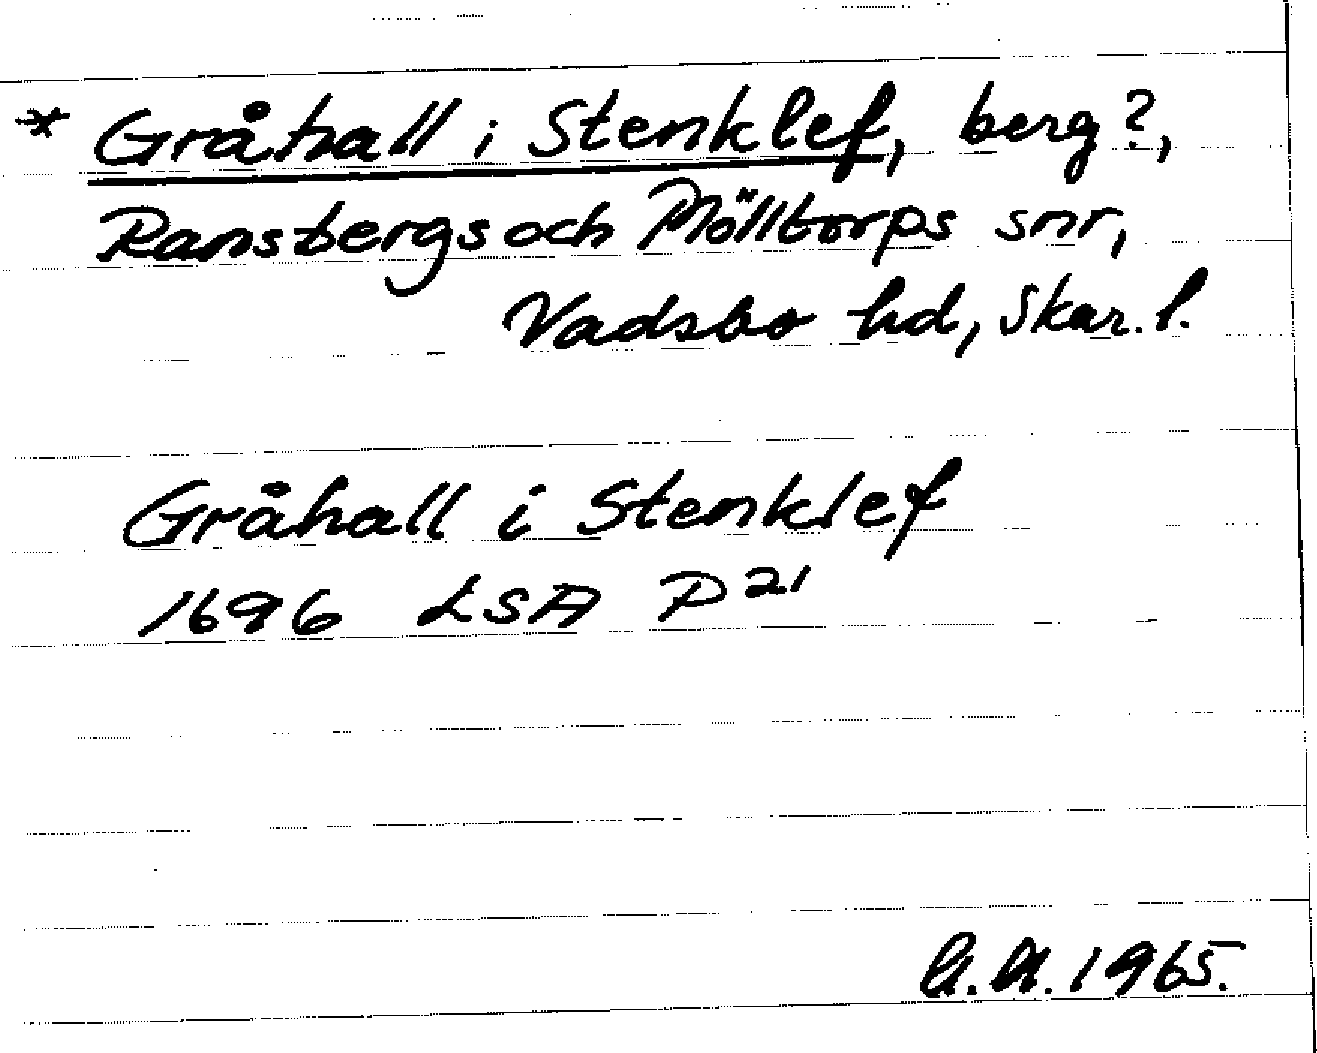 * Gråhall i Stenklef, berg?,
Ransbergs och Mölltorps snr,
Vadsbo hd, Skar. l.
Gråhall i Stenklef
1696 LSA P 21
1965.